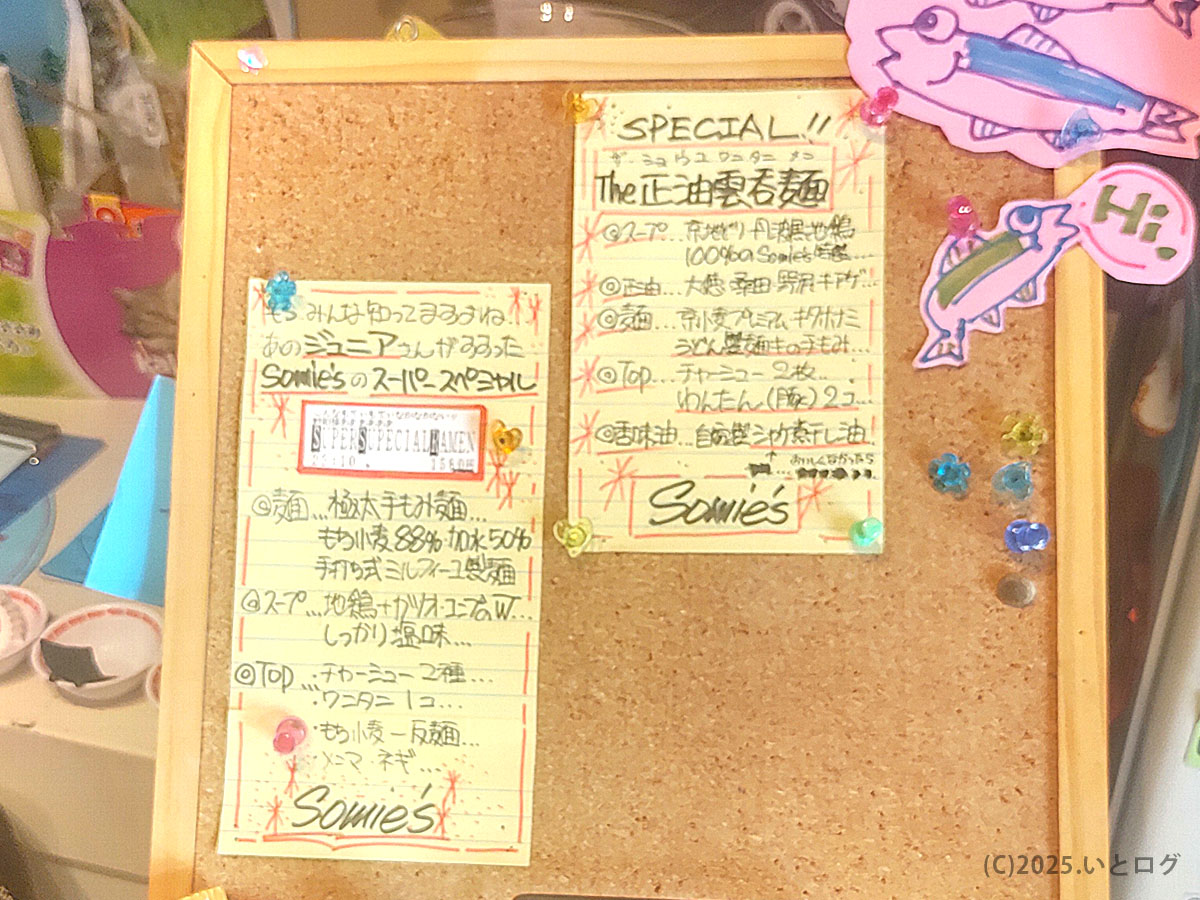 もう みんな知ってますよね..
あのジュニアさんがつくった
Somie'sのスーパースペシャル
SUPER SUPECIAL RAMEN
1580円
◎麺...極太手もみ麺...
もち小麦88% 加水50%
手打ち式ミルフィーユ製麺
◎スープ...地鶏+カツオ・コンブのW...
しっかり塩味...
◎Top...・チャーシュー2種...
・ワンタン1コ...
・もち小麦一反麺...
・メンマ ネギ...
Somie's
SPECIAL!!
ザ・ショウユワンタンメン
The正油雲呑麺
◎スープ...京地どり 丹波黒地鶏
100%のSomie's
◎正油...大徳 桑田 野沢 キアゲ...
◎麺...京小麦プレミアム キタカナミ
うどん製麺キの手もみ...
◎Top...チャーシュー2枚..
わんたん(豚)2コ...
◎香味油...自家製シャケ煮干し油...
↑おいしくなかったら
Somie's
Hi,
(C)2025.いとログ